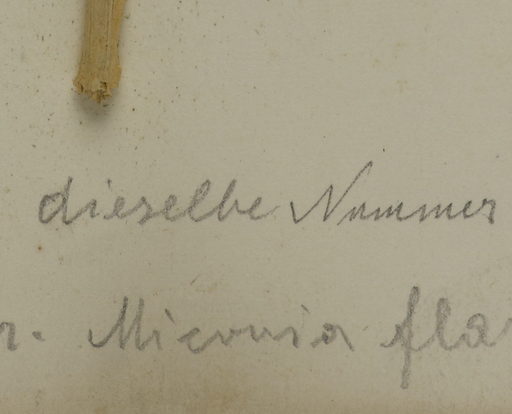 dieselbe Nummer
Miconia fla